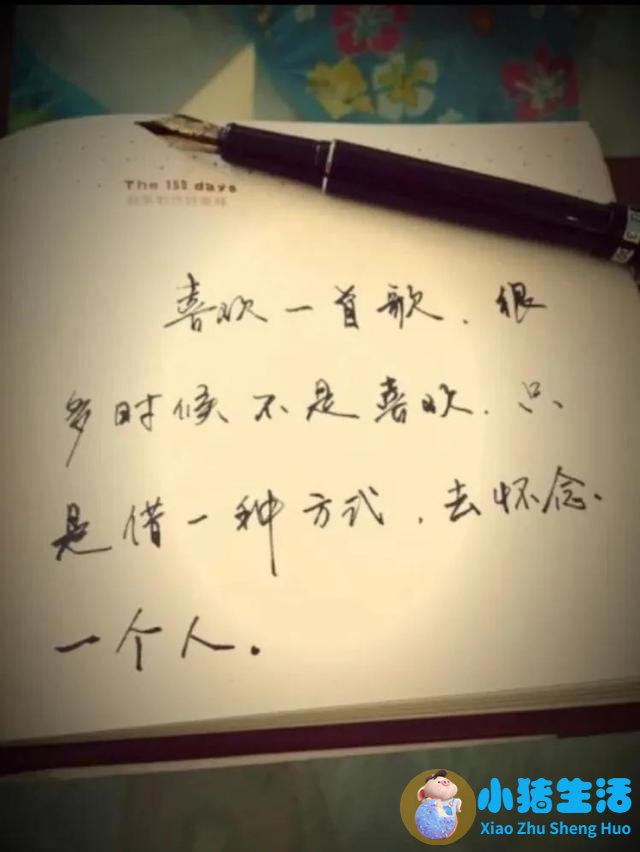 The 150 days
喜欢一首歌，很
多时候不是喜欢，只
是借一种方式，去怀念
一个人。
小猪生活
Xiao Zhu Sheng Huo